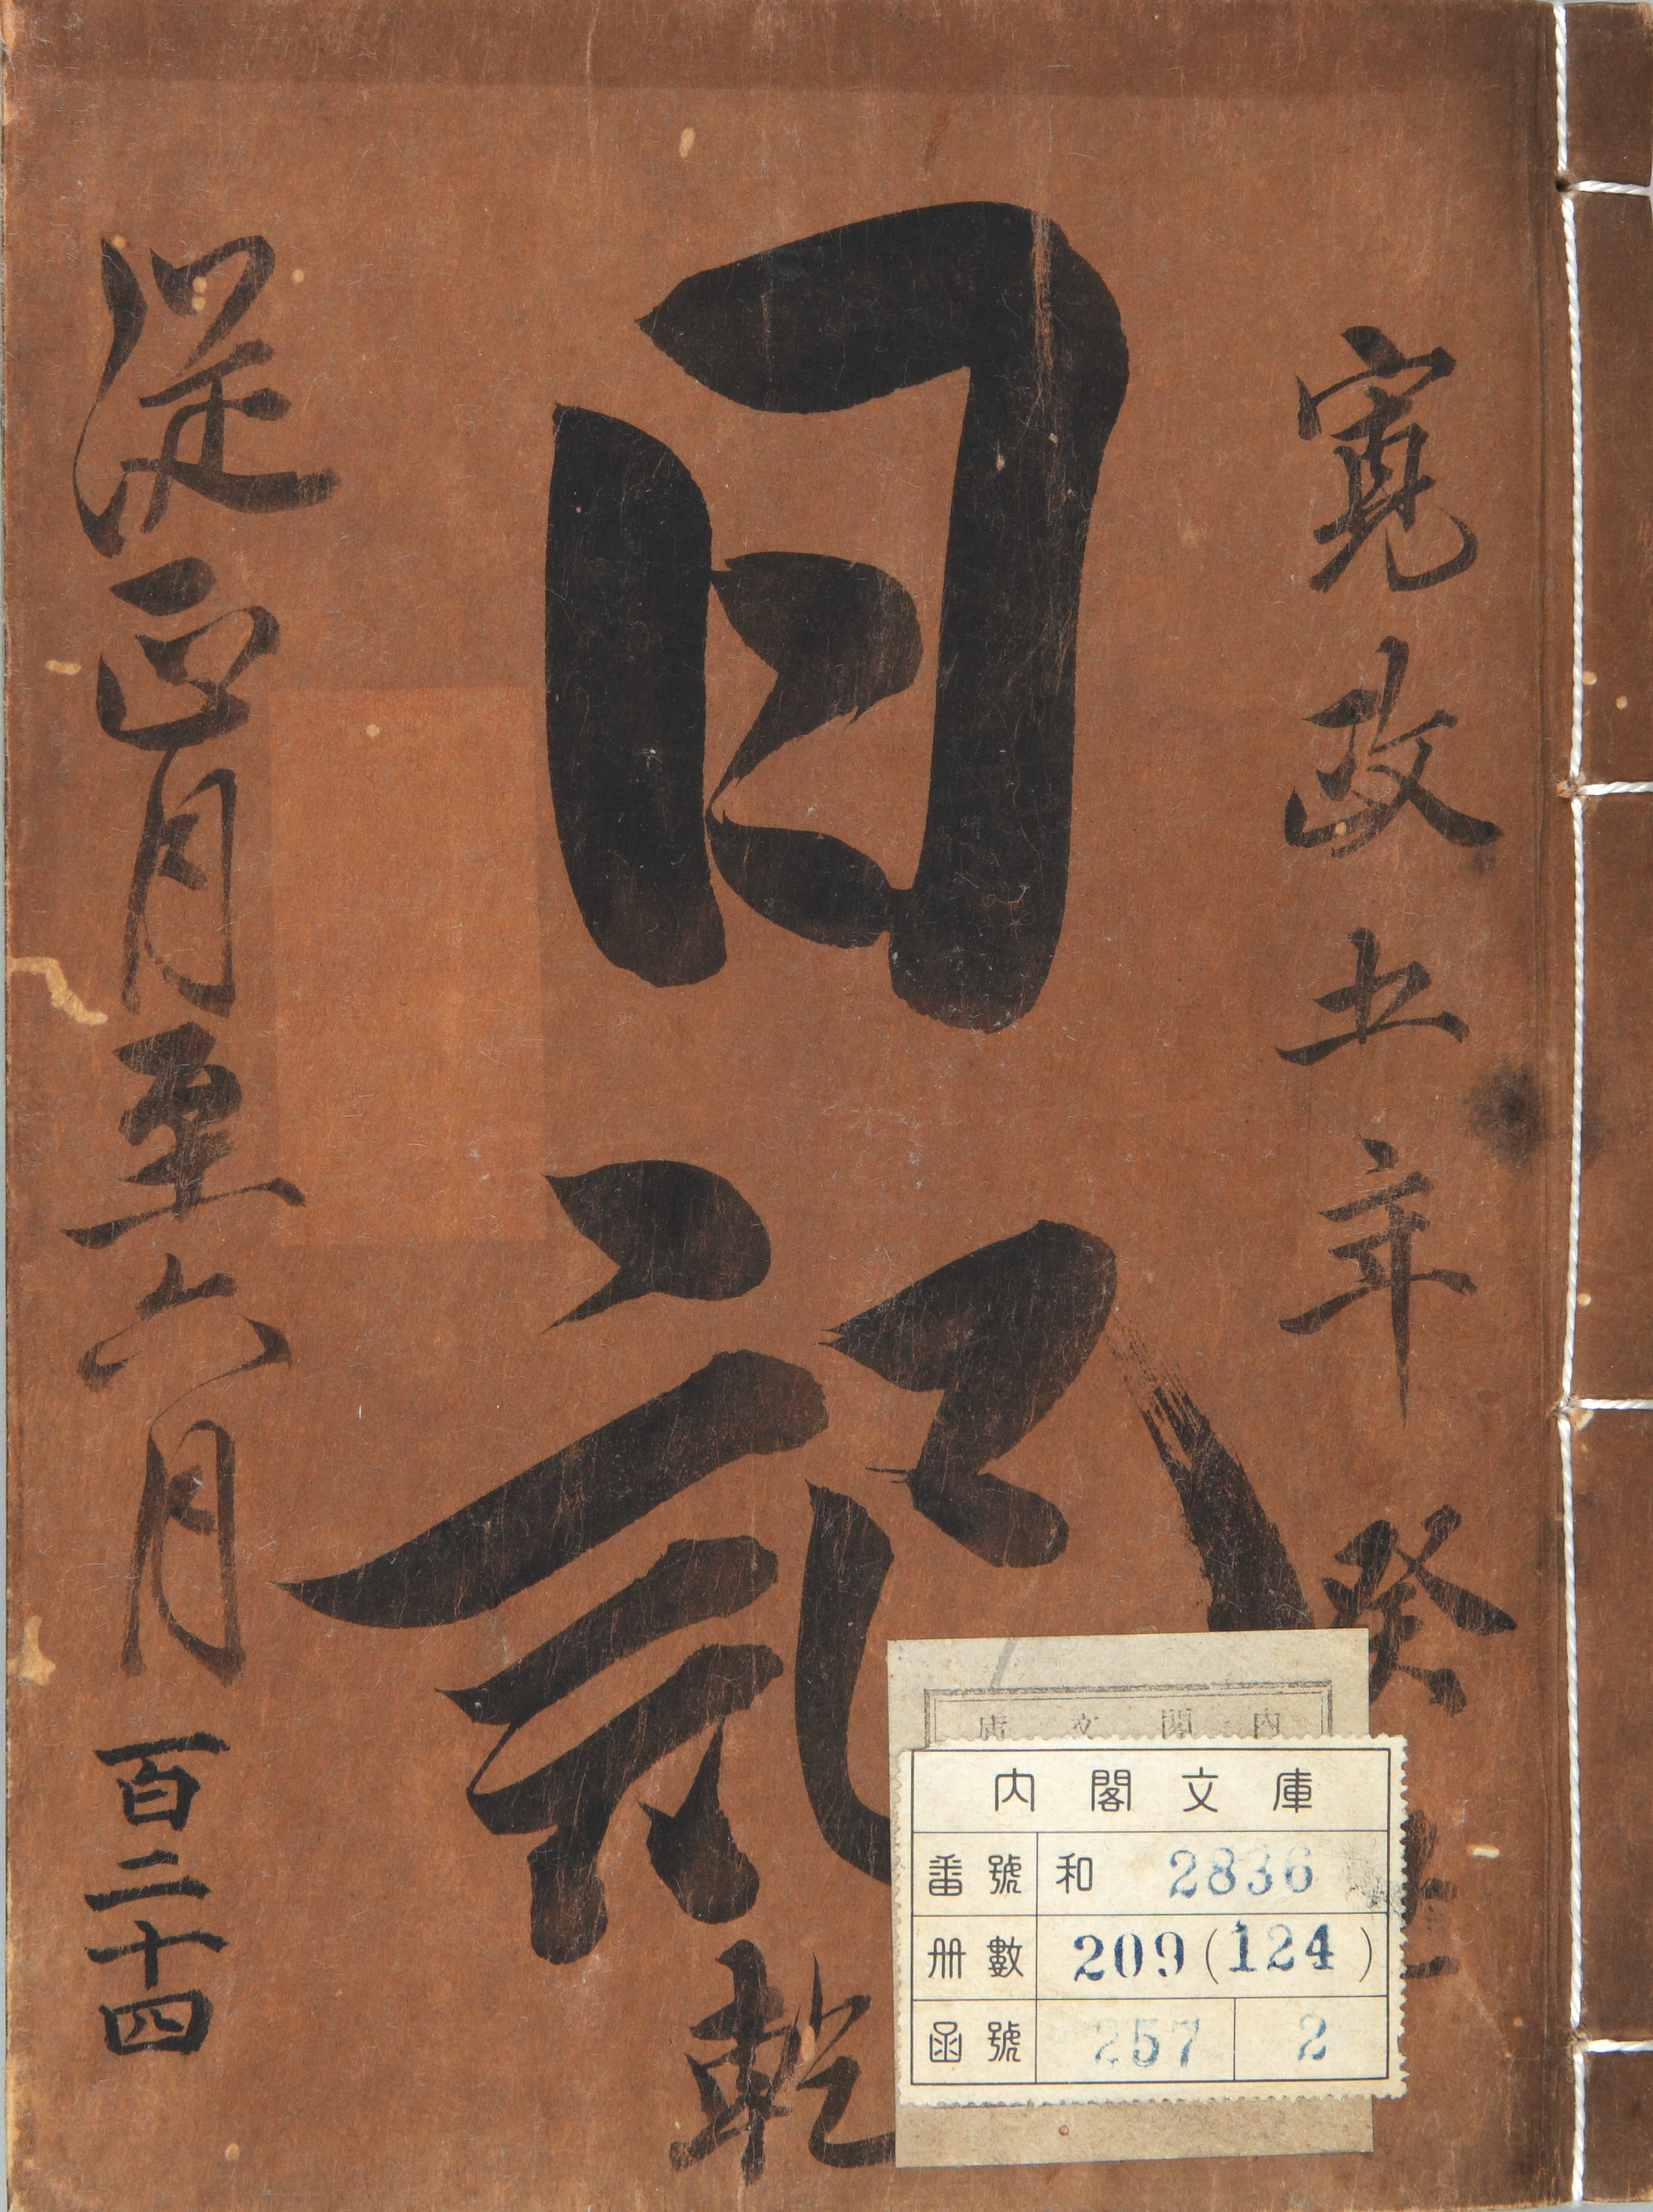 寛政五年 癸丑
日記 乾
従正月至六月
百二十四
内閣文庫
内閣文庫
番號 和 2836
冊數 209(124)
函號 257 2